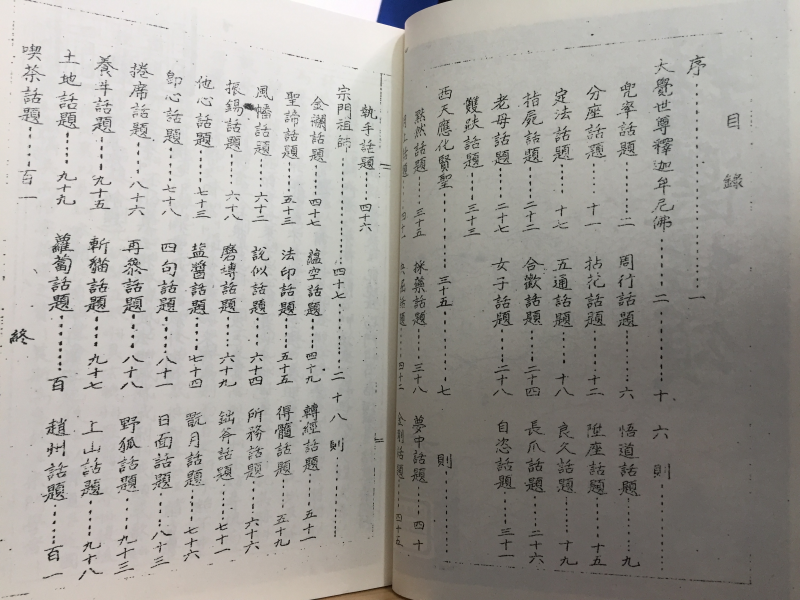 目錄
序……一
大覺世尊釋迦牟尼佛……二……十六則
兜率話題……二 周行話題……六 悟道話題……九
分座話題……十一 拈花話題……十二 陞座話題……十五
定法話題……十七 五通話題……十八 良久話題……十九
指屍話題……二十二 合歡話題……二十四 長爪話題……二十六
老母話題……二十七 女子話題……二十八 自恣話題……三十一
雙趺話題……三十三
西天應化賢聖……三十五……七則
黙然話題……三十五 採藥話題……三十八 夢中話題……四十
話題 話題……四十二 金剛話題……四十五
執手話題……四十六
宗門祖師……四十七……二十八則
金襴話題……四十七 蘊空話題……四十九 轉經話題……五十一
聖諦話題……五十三 法印話題……五十五 得髓話題……五十九
風幡話題……六十二 說似話題……六十四 所務話題……六十六
振錫話題……六十八 磨塼話題……六十九 鈯斧話題……七十一
他心話題……七十三 鹽醬話題……七十四 翫月話題……七十六
卽心話題……七十八 四句話題……八十一 日面話題……八十三
捲席話題……八十六 再叅話題……八十八 野狐話題……九十三
養牛話題……九十五 斬貓話題……九十七 上山話題……九十八
土地話題……九十九 蘿蔔話題……百 趙州話題……百一
喫茶話題……百一 終